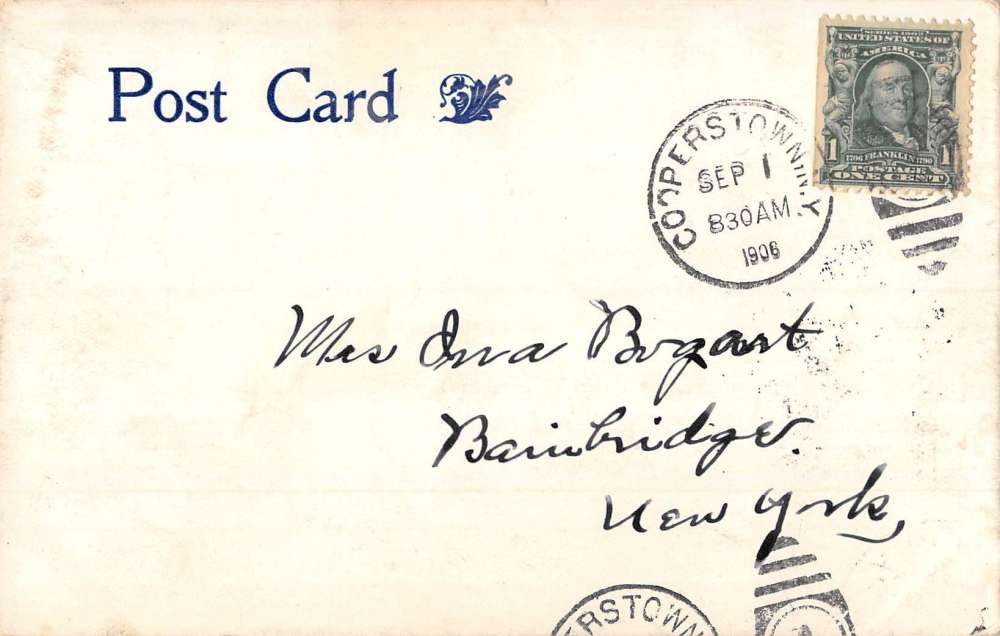 Post Card
SERIES 1902
UNITED STATES OF
AMERICA
1 1
1706 FRANKLIN 1790
POSTAGE
ONE CENT
COOPERSTOWN, N.Y.
SEP 1
830AM
1906
Mrs Bogart
Bainbridge.
New York,
ERSTOWN